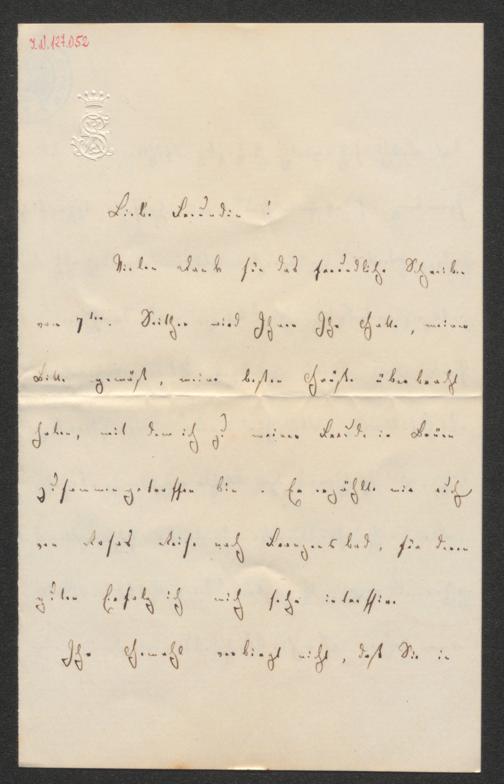 I.N. 127.052
Liebe Freundin!
Vielen Dank für das freundliche Schreiben
vom 7ten. Seither wird Ihnen Ihr Gatte, meiner
Bitte gemäß, meine besten Grüße überbracht
haben, mit dem ich zu meiner Freude in Brünn
zusammengetroffen bin. Er erzählte mir auch
von Rosas Reise nach Franzensbad, für deren
guten Erfolg ich mich sehr interessire.
Ihr Gemahl verbirgt nicht, daß Sie in